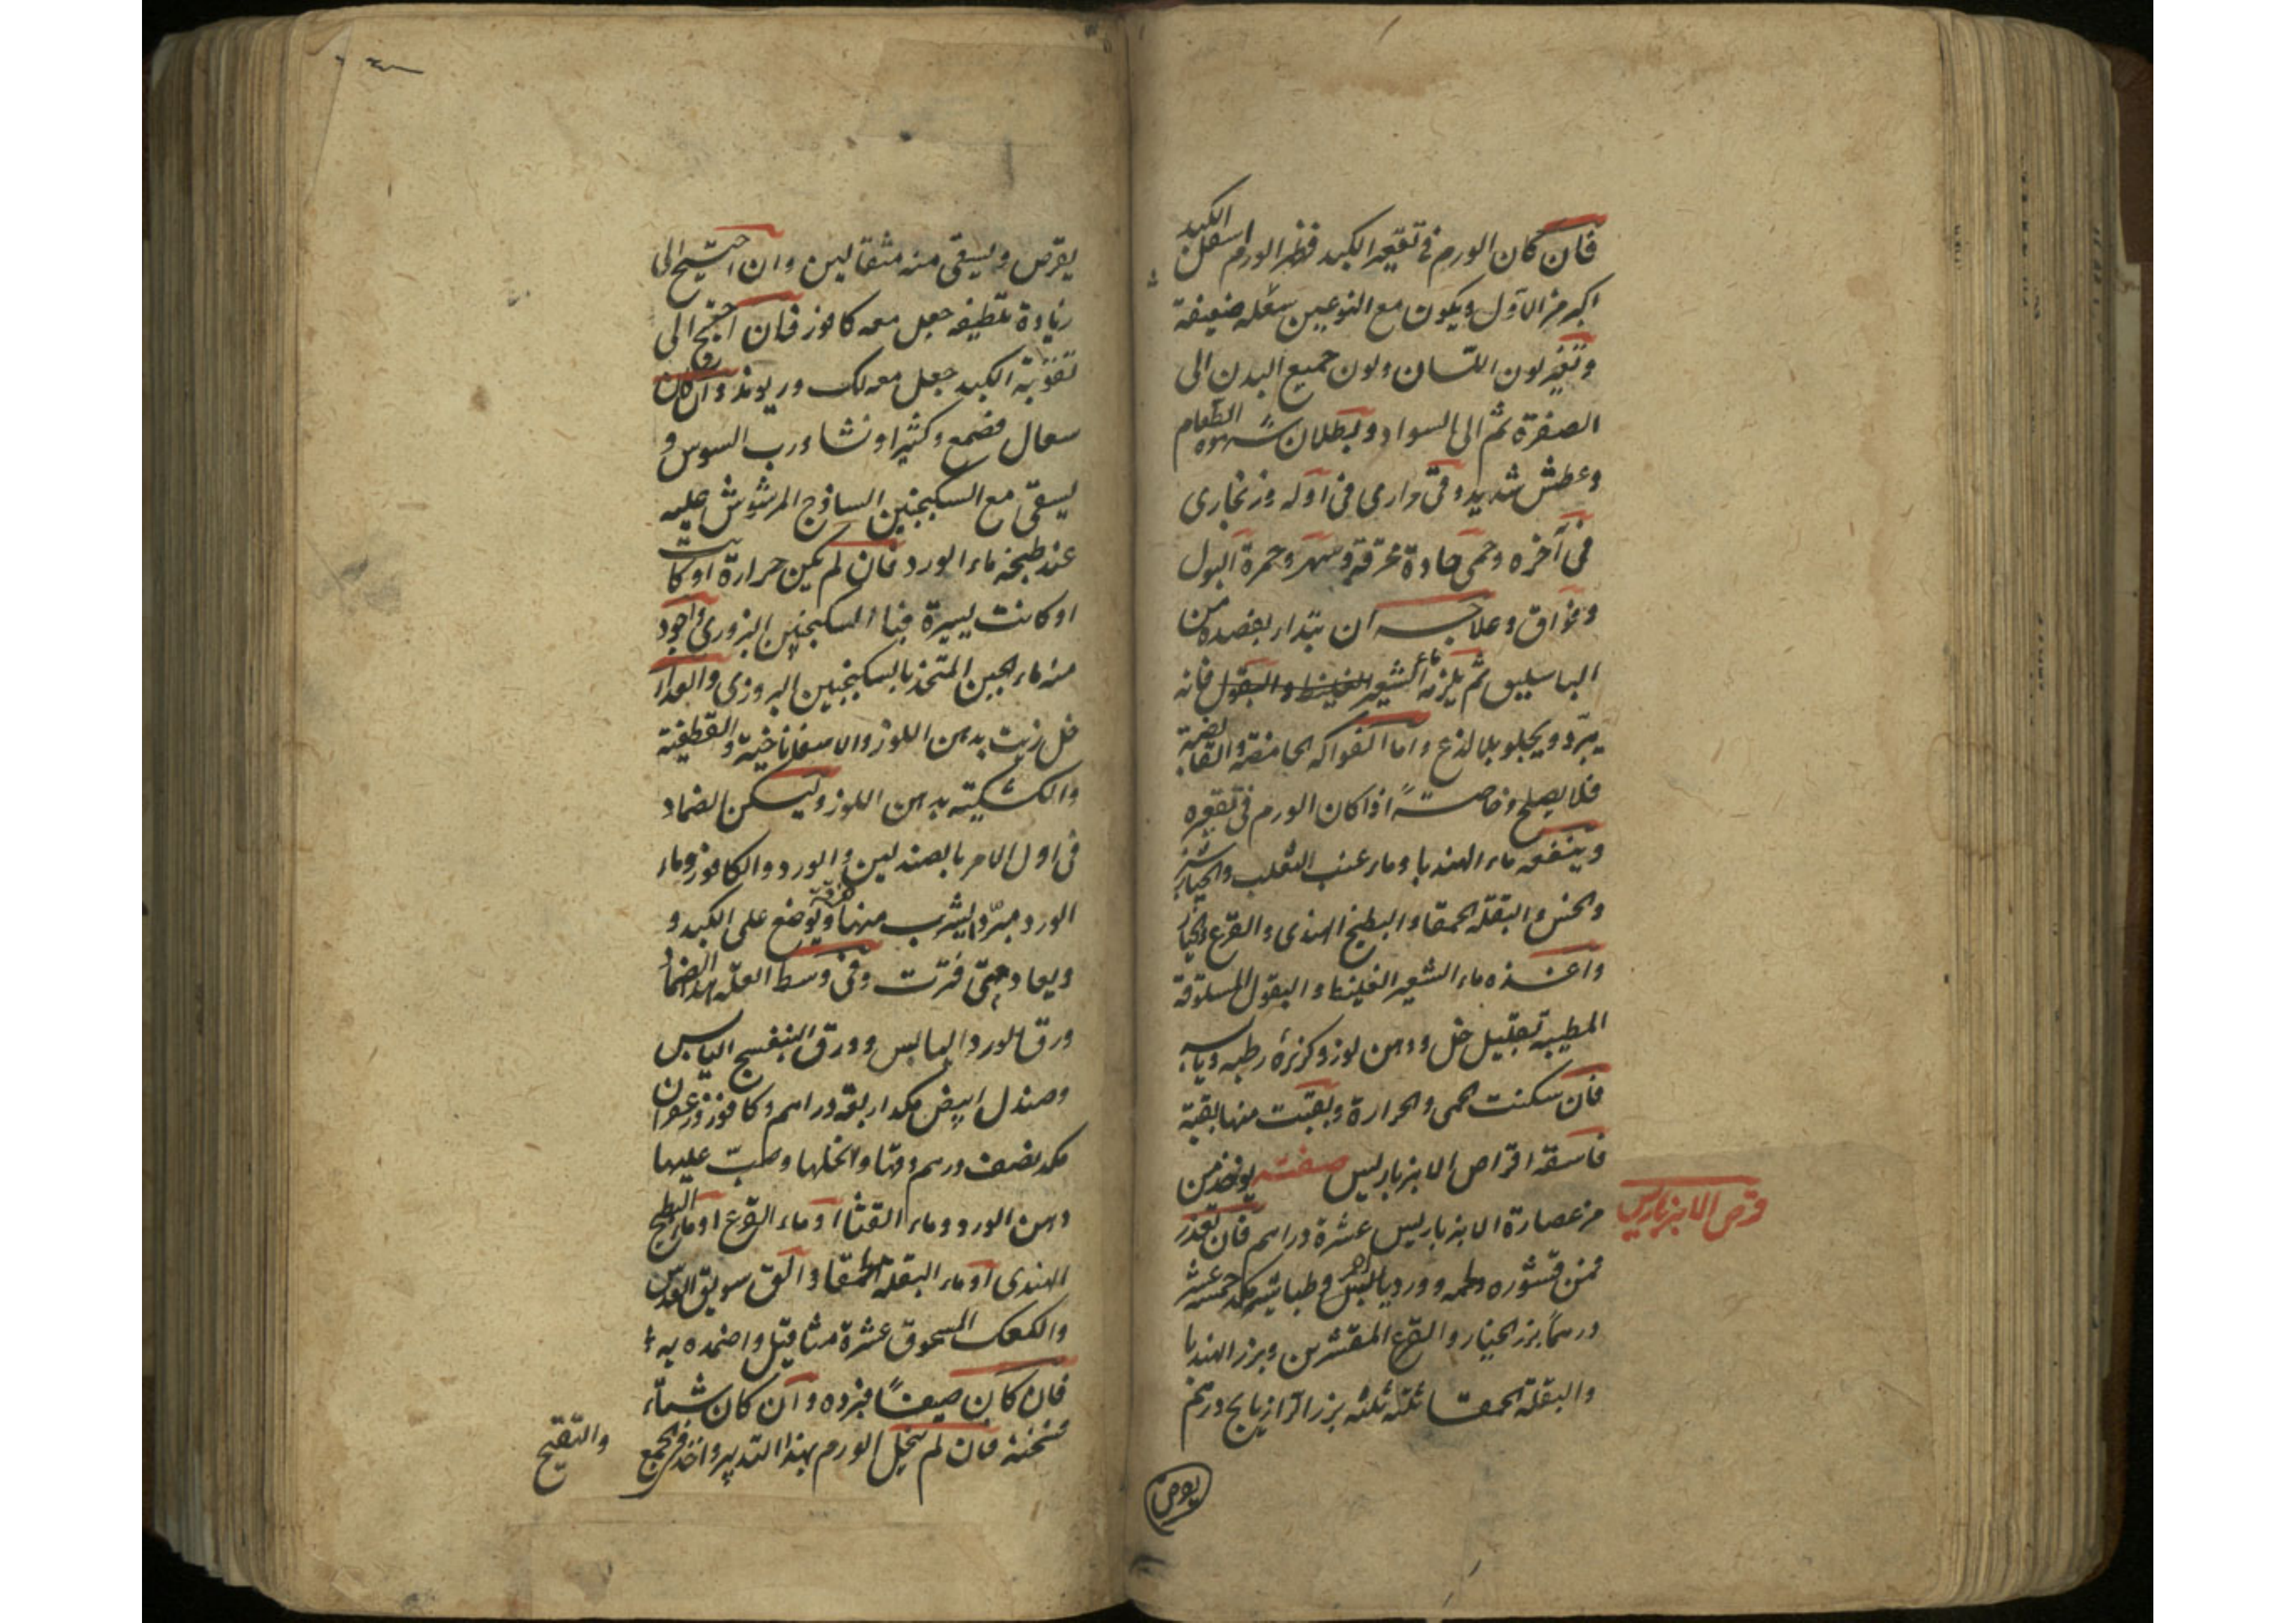 فان كان الورم في تقعير الكبد فظهر الورم اسفل الكبد
اكبر من الاول ويكون مع النوعين سعلة ضعيفة
وتغير لون اللسان ولون جميع البدن الى
الصفرة ثم الى السواد وبطلان شهوة الطعام
وعطش شديد وقئ مرارى في اوله وزنجارى
في آخره وحمى حادة محرقة وسهر وحمرة البول
وفواق وعلاجه ان يبتدا بفصده من
الباسليق ثم يلزمه ماء الشعير الغليظ والبقول فانه
يبرد ويجلو بلا لذع واما الفواكه الحامضة والقابضة
فلا يصلح وخاصة اذا كان الورم في تقعيره
وينفعه ماء الهندبا وماء عنب الثعلب والخيار شنبر
والخس والبقلة الحمقا والبطيخ الهندى والقرع والخيار
واغذه ماء الشعير الغليظ والبقول المسلوقة
المطيبة بقليل خل ودهن لوز وكزبرة رطبة ويابسه
فان سكنت الحمى والحرارة وبقيت منها بقية
فاسقه اقراص الابنرباريس صفته يوخذ من
من عصارة الابنرباريس عشرة دراهم فان تعذر
فمن قشوره ولحمه وورد يابس وطباشير مكد خمسة عشر
درهما بزر الخيار والقرع المقشرين وبزر الهندبا
والبقلة الحمقا ثلثه ثلثه بزر الرازيانج درهم
قرص الابنرباريس
يقرص
يقرص ويسقى منه مثقالين وان احتيج الى
زيادة تلطيفه جعل معه كافور فان احتيج الى
تقوية الكبد جعل معه لك وريوند وان كان
سعال فصمغ وكثيرا ونشا ورب السوس و
يسقى مع السكنجبين الساذج المرشوش عليه
عند طبخه ماء الورد فان لم يكن حرارة او كانت
او كانت يسيرة فبالسكنجبين البزورى واجود
منه ماء الجبن المتخذ بالسكنجبين البزورى والغذاء
خل زيت بدهن اللوز والاسفاناخية والقطفية
والكشكية بدهن اللوز وليسكن الضماد
في اول الامر بالصندلين والورد والكافور وماء
الورد مبردا يشرب منها خرقة ويوضع على الكبد و
ويعاد متى فترت وفي وسط العلة بهذا الضماد
ورق الورد اليابس وورق البنفسج اليابس
وصندل ابيض مكد اربعة دراهم وكافور وزعفران
مكد نصف درهم دقها وانخلها وصب عليها
دهن الورد وماء القثا او ماء القرع او ماء البطيخ
الهندى او ماء البقلة الحمقا والق سويق العدس
والكعك المسحوق عشرة مثاقيل واضمده به
فان كان صيفا فبرده وان كان شتاء
فسخنه فان لم يتحلل الورم بهذا التدبير واخذ في الجمع
والتقيح